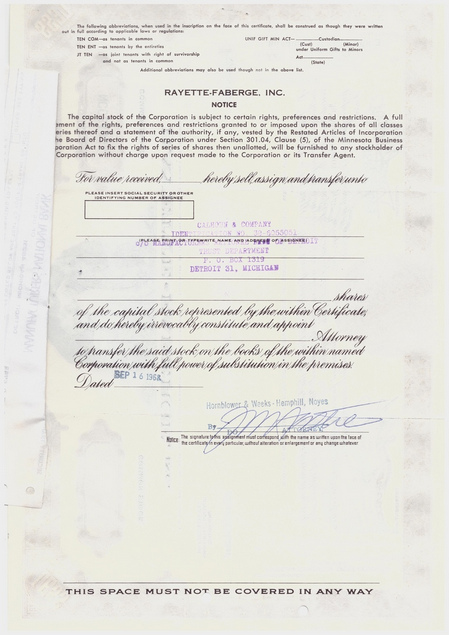 The following abbreviations, when used in the inscription on the face of this certificate, shall be construed as though they were written
out in full according to applicable laws or regulations:
TEN COM—as tenants in common UNIF GIFT MIN ACT— Custodian
(Cust) (Minor)
TEN ENT —as tenants by the entireties under Uniform Gifts to Minors
JT TEN —as joint tenants with right of survivorship Act
and not as tenants in common (State)
Additional abbreviations may also be used though not in the above list.
RAYETTE-FABERGE, INC.
NOTICE
The capital stock of the Corporation is subject to certain rights, preferences and restrictions. A full
ement of the rights, preferences and restrictions granted to or imposed upon the shares of all classes
eries thereof and a statement of the authority, if any, vested by the Restated Articles of Incorporation
he Board of Directors of the Corporation under Section 301.04, Clause (5), of the Minnesota Business
poration Act to fix the rights of series of shares then unallotted, will be furnished to any stockholder of
Corporation without charge upon request made to the Corporation or its Transfer Agent.
For value received hereby sell, assign and transfer unto
PLEASE INSERT SOCIAL SECURITY OR OTHER
IDENTIFYING NUMBER OF ASSIGNEE
& COMPANY
(PLEASE PRINT OR TYPEWRITE NAME AND ADDRESS OF ASSIGNEE)
DEPARTMENT
P. O. BOX 1319
DETROIT 31, MICHIGAN
shares
of the capital stock represented by the within Certificate,
and do hereby irrevocably constitute and appoint
Attorney
to transfer the said stock on the books of the within named
Corporation with full power of substitution in the premises.
Dated SEP 16
Hornblower & Weeks-Hemphill, Noyes
By
ATTORNEY
Notice: The signature to this assignment must correspond with the name as written upon the face of
the certificate in every particular, without alteration or enlargement or any change whatever
THIS SPACE MUST NOT BE COVERED IN ANY WAY